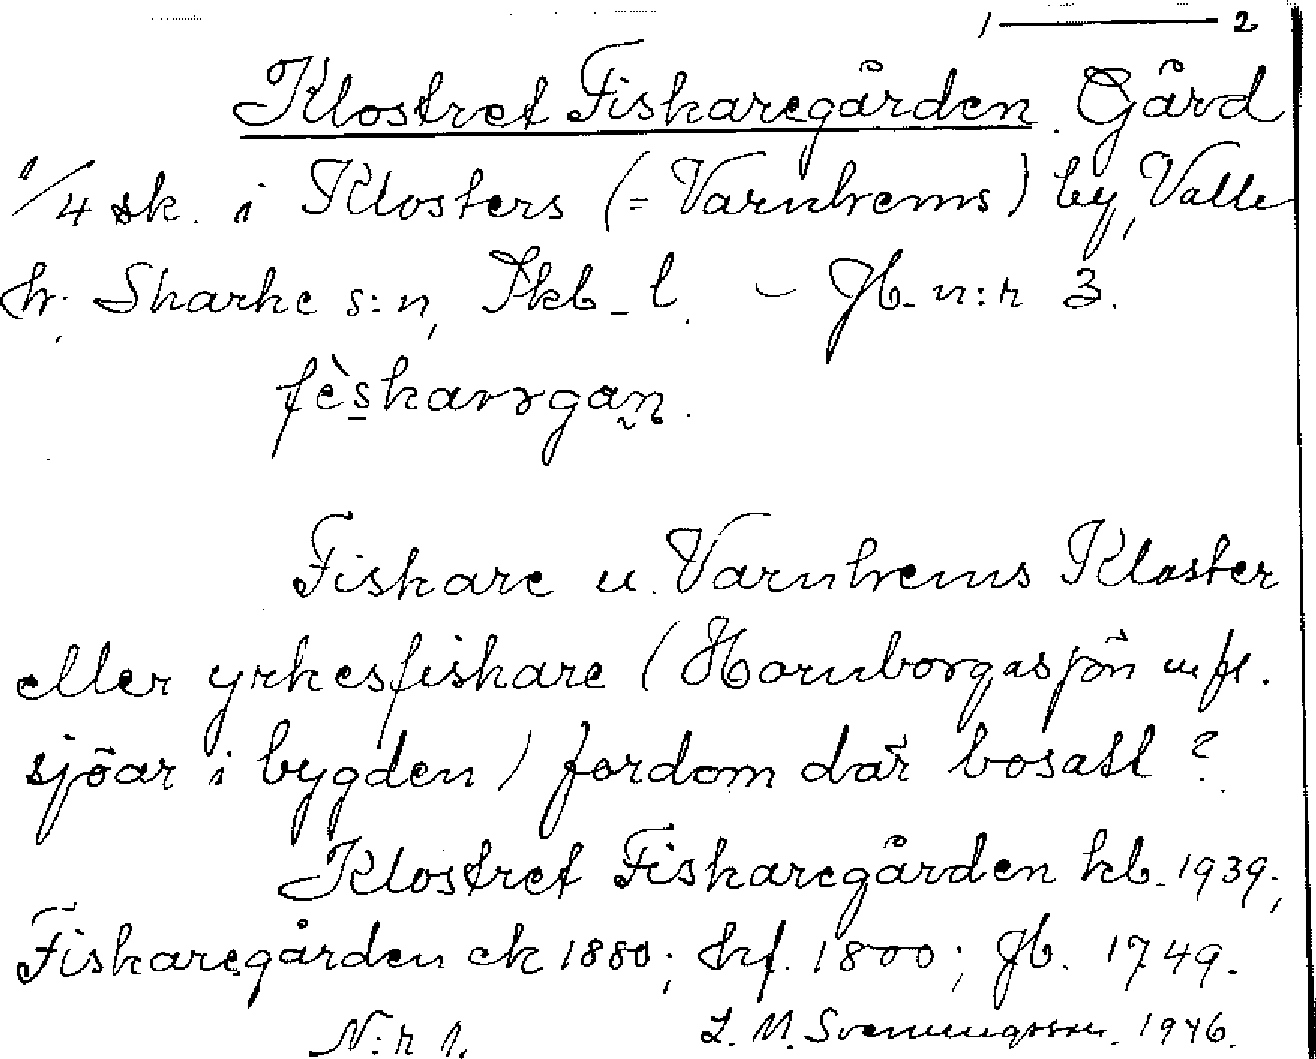 1 — 2
Klostret Fiskaregården. Gård
1/4 sk. i Klosters (= Varnhems) by, Valle
hr. Skarke s:n, Skb. l. – Jb. n:r 3.
fèskarrgan.
Fiskare u. Varnhems Kloster
eller yrkesfiskare (Hornborgasjön m fl.
sjöar i bygden) fordom där bosatt?
Klostret Fiskaregården kb. 1939;
Fiskaregården ek 1880; hf. 1800; Jb. 1749.
N:r 1. L. M. Svenungsson. 1946.